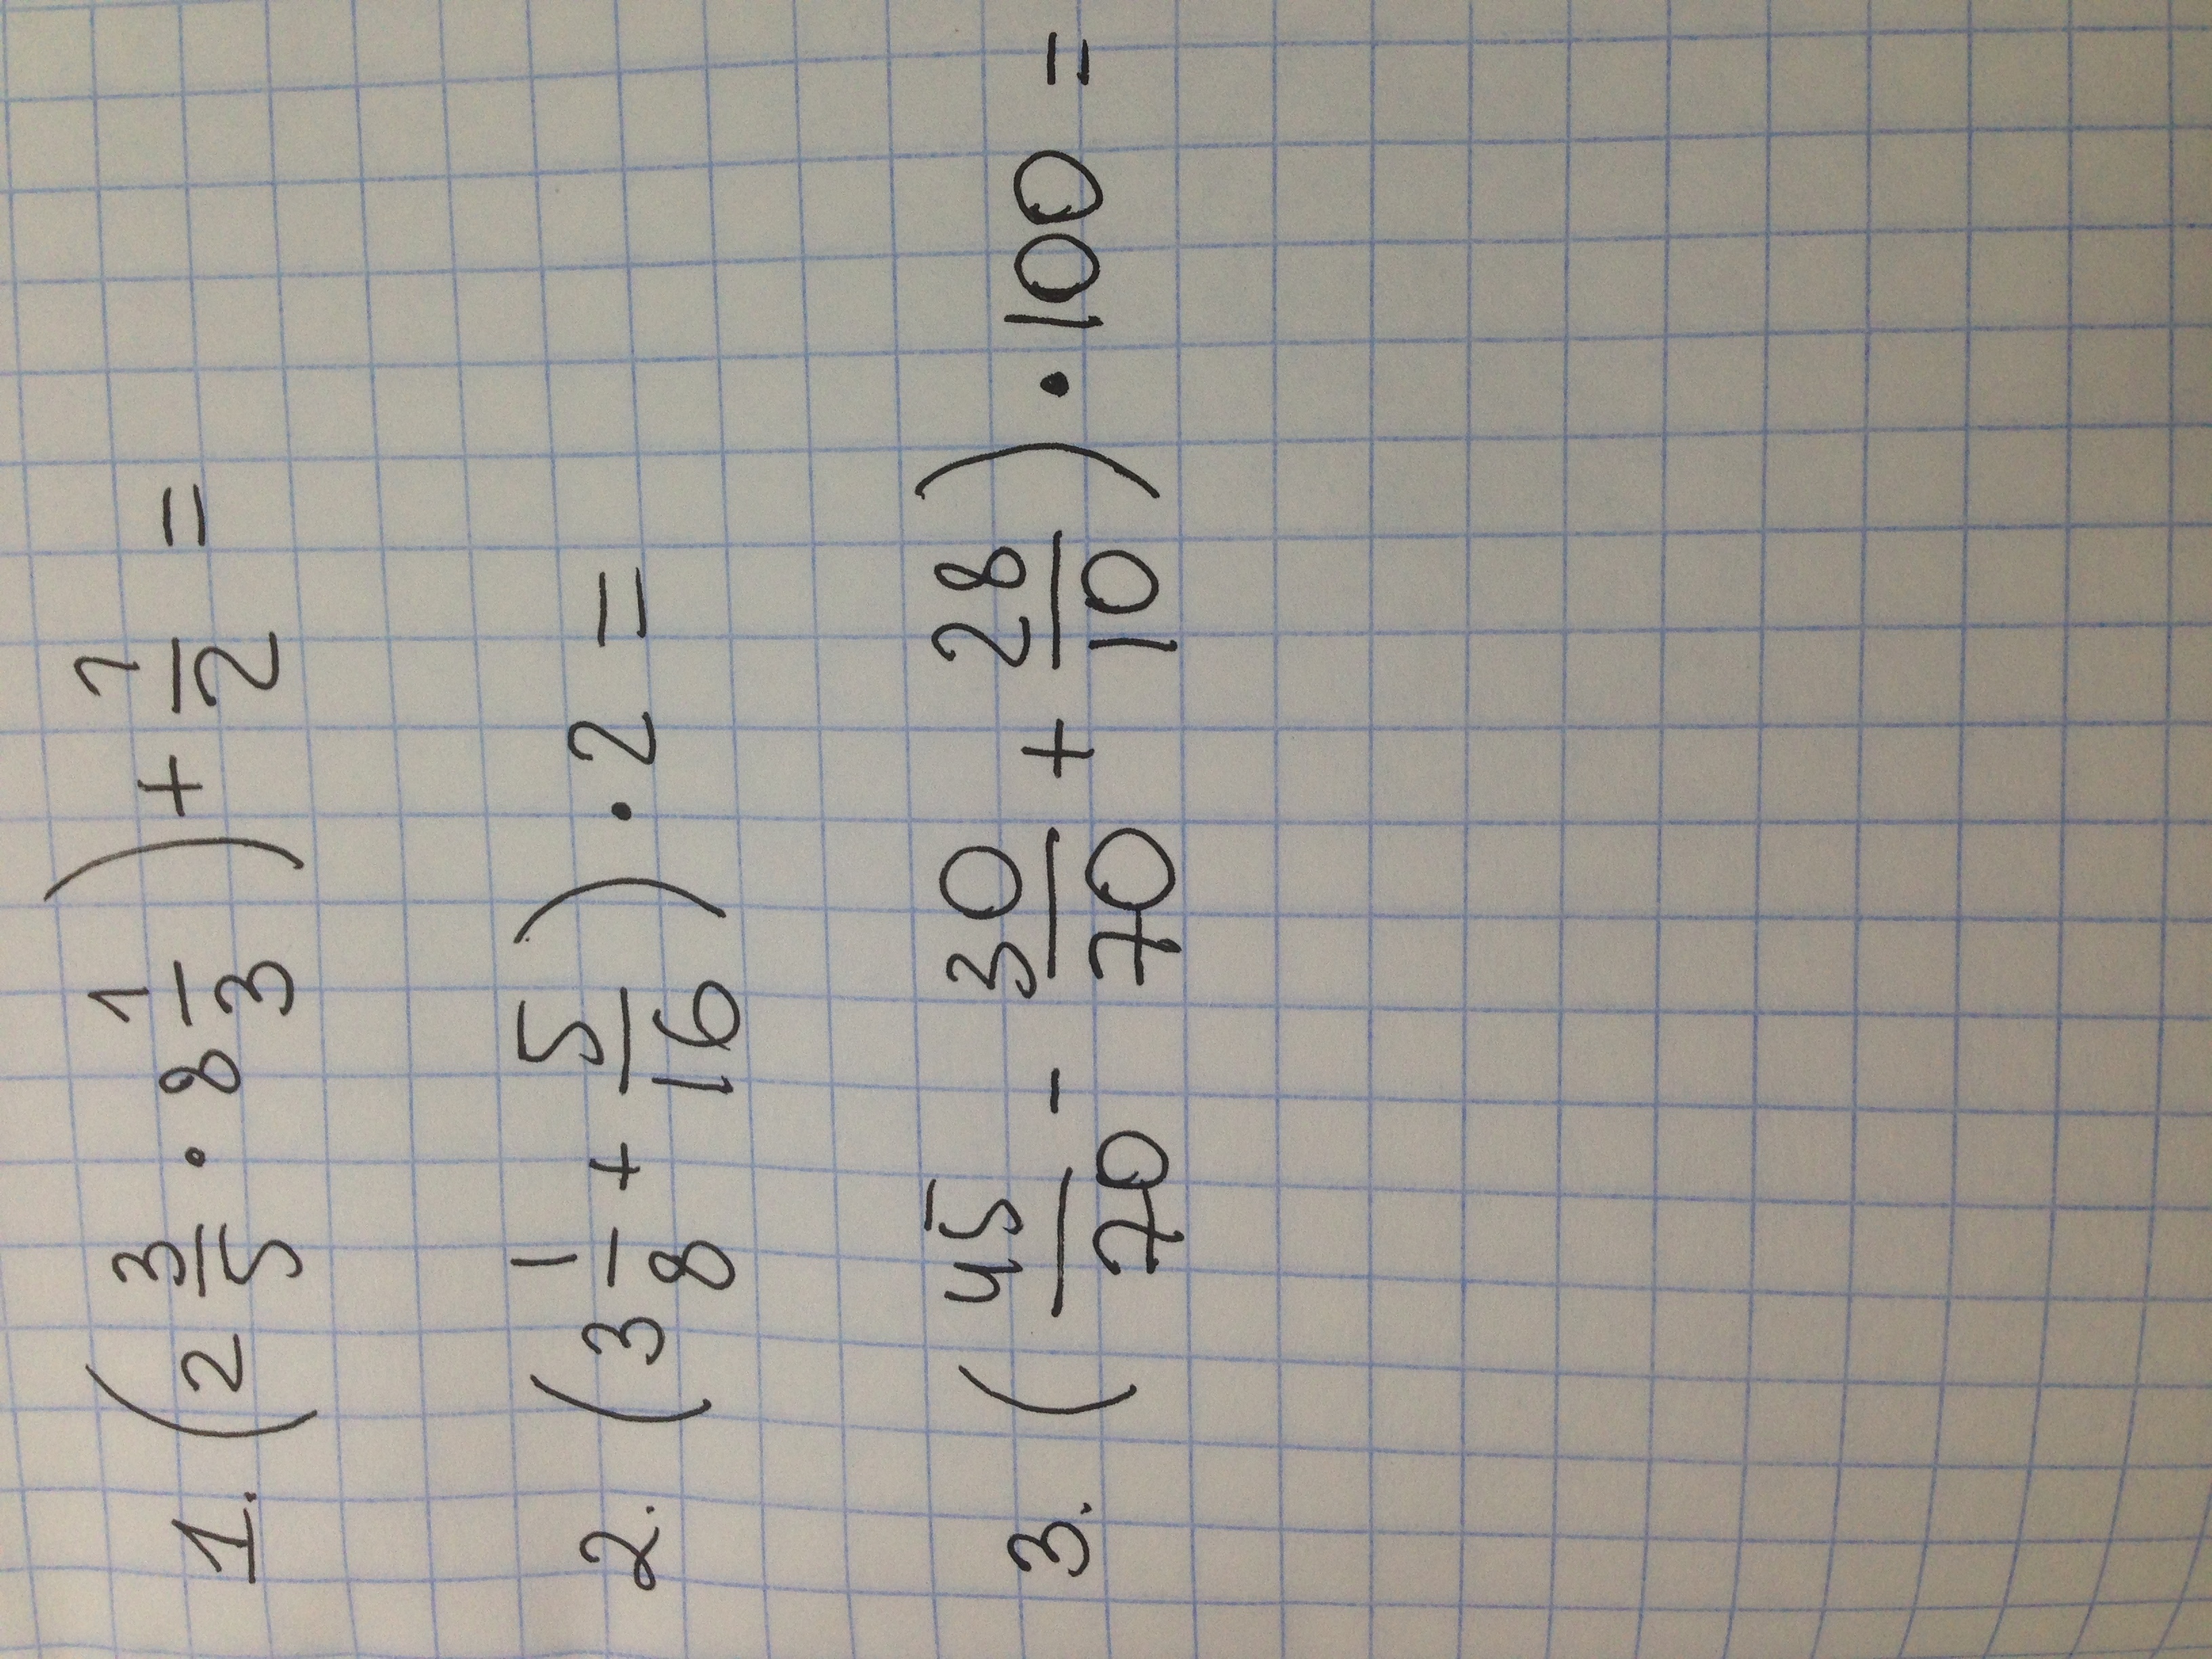 1. (2 3/5 · 8 1/3) + 1/2 =
2. (3 1/8 + 5/16) · 2 =
3. (45/70 - 30/70 + 28/10) · 100 =